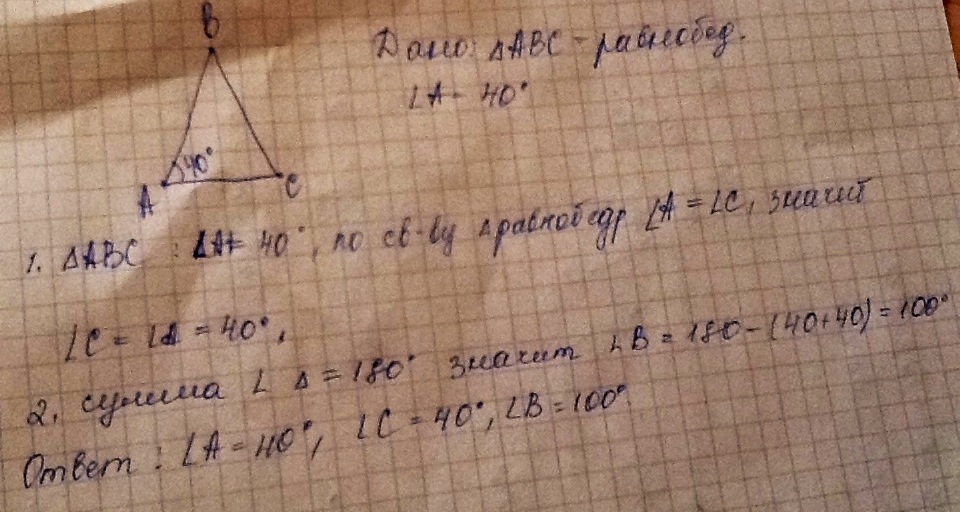 B
Дано: ΔABC - равнобед.
∠A - 40°
40°
A
C
1. ΔABC : ∠A = 40°, по св-ву Δравнобедр ∠A = ∠C, значит
∠C = ∠A = 40°,
2. сумма ∠ Δ = 180° значит ∠B = 180 - (40+40) = 100°
Ответ: ∠A = 40°, ∠C = 40°, ∠B = 100°.